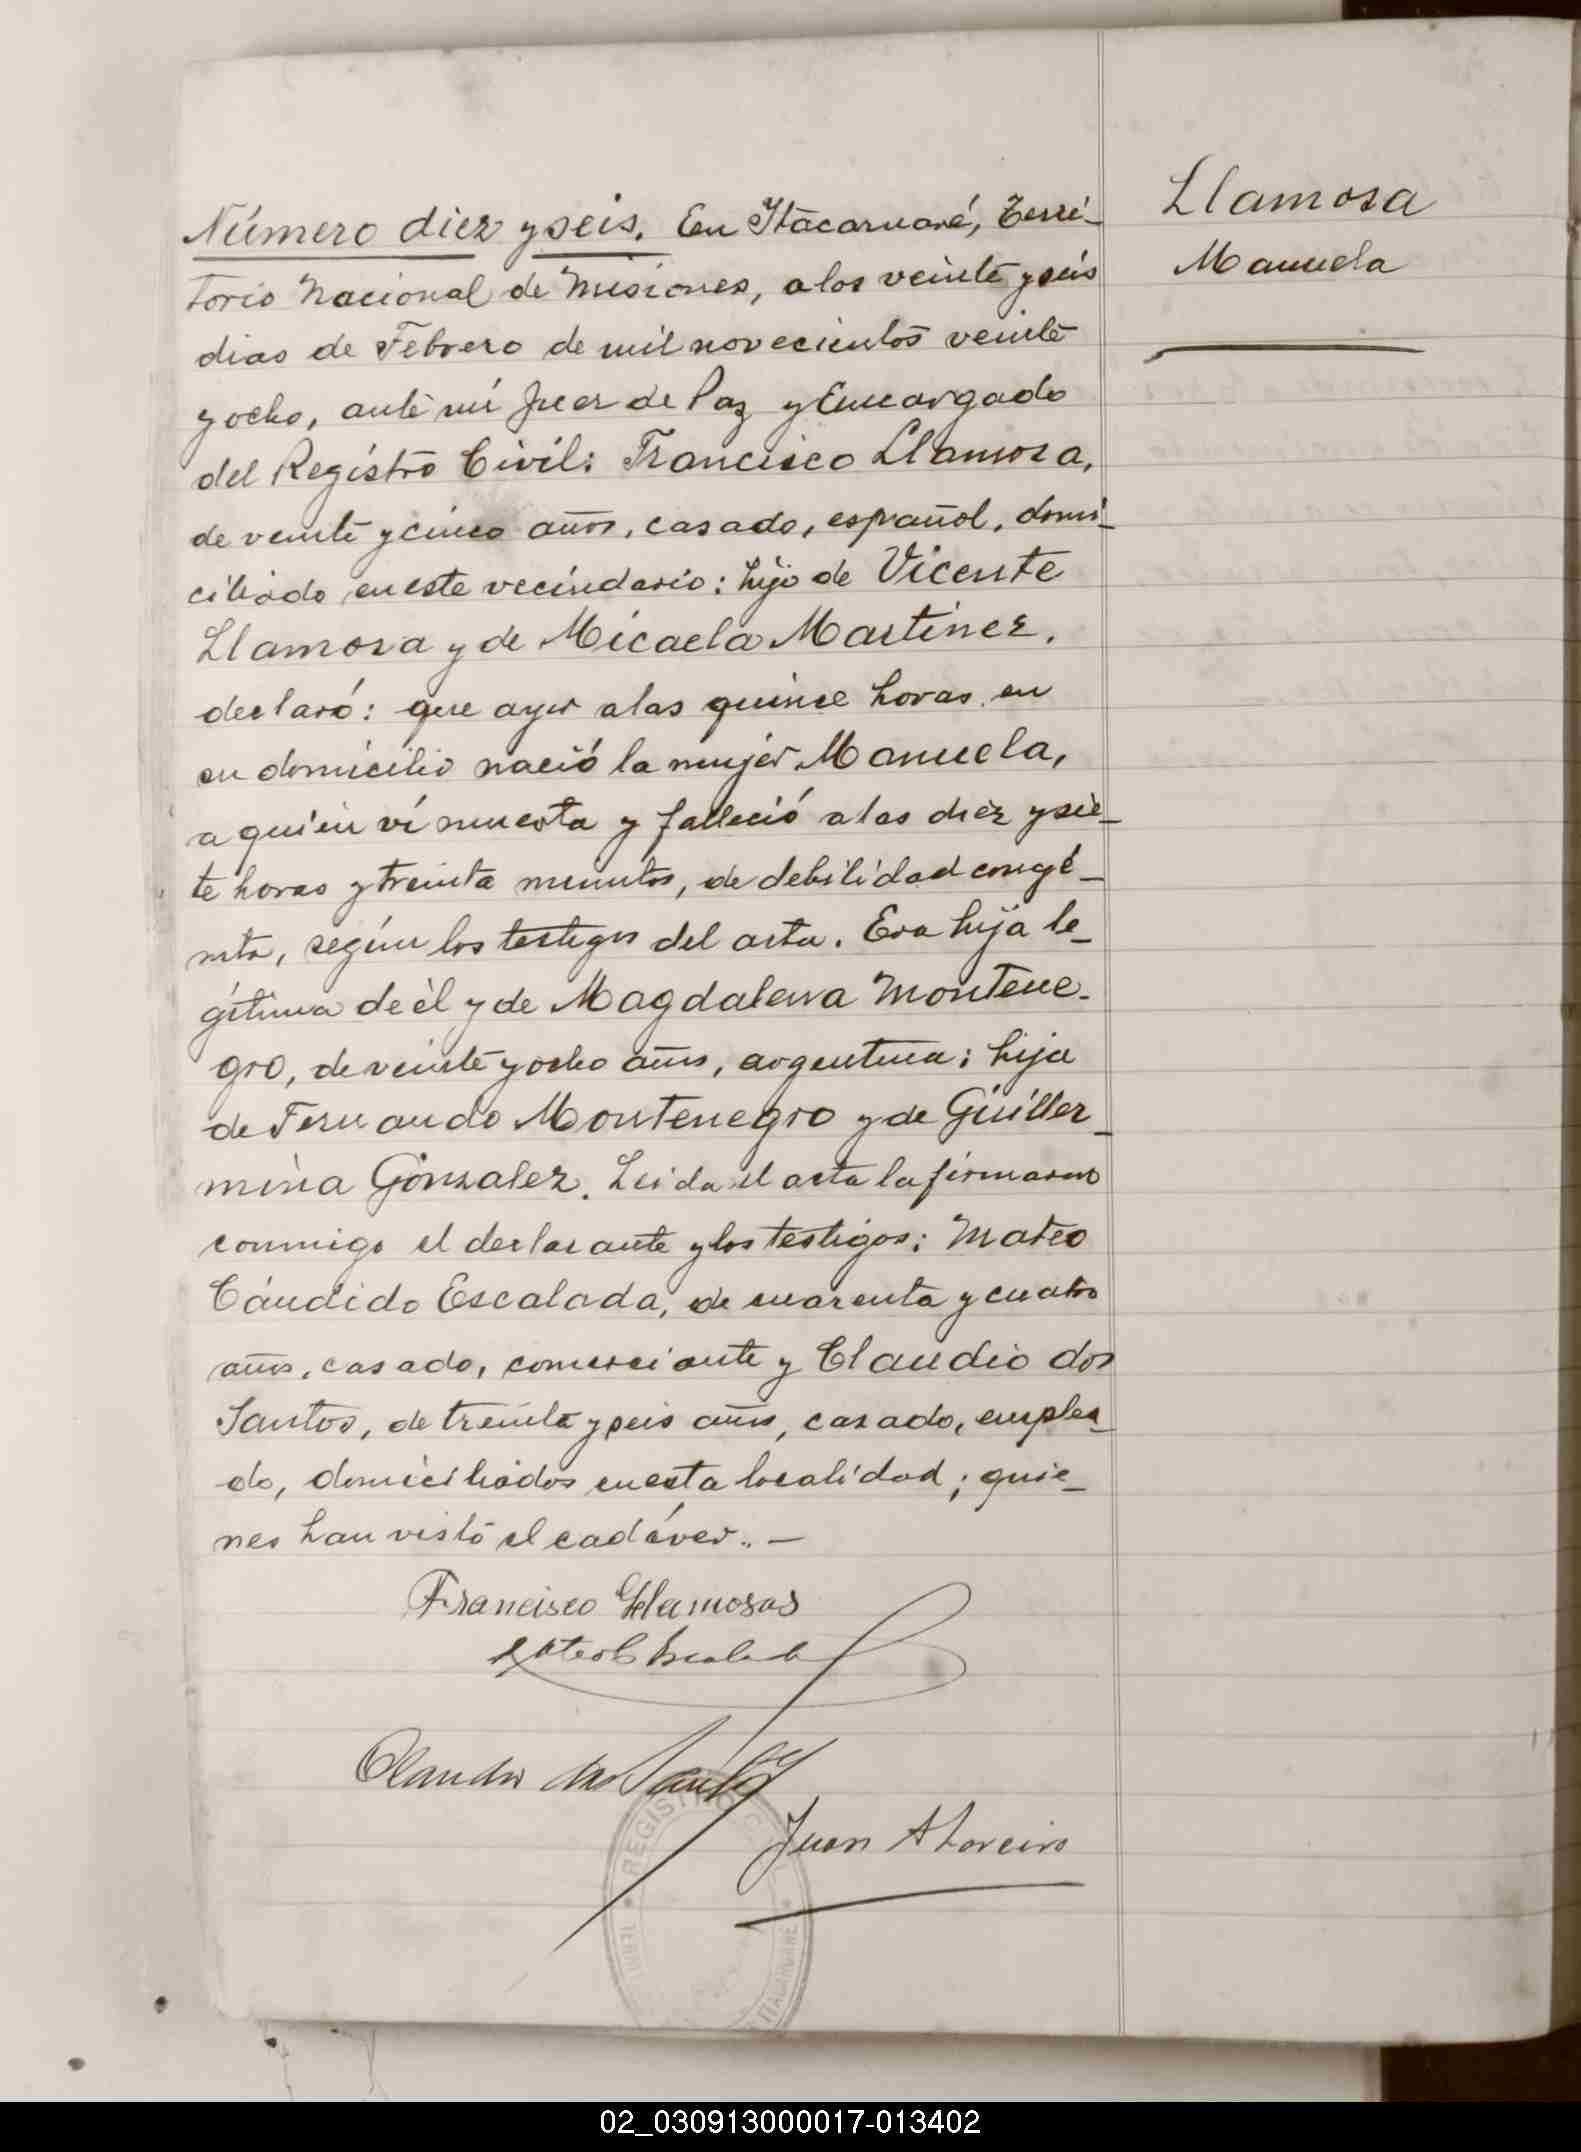 Llamosa
Manuela
Número diez y seis. En Itacaruaré, Terri-
torio Nacional de Misiones, a los veinte y seis
dias de Febrero de mil novecientos veinte
y ocho, ante mí Juez de Paz y Encargado
del Registro Civil: Francisco Llamosa,
de veinte y cinco años, casado, español, domi-
ciliado en este vecindario: hijo de Vicente
Llamosa y de Micaela Martinez,
declaró: que ayer a las quince horas, en
su domicilio nació la mujer Manuela,
a quien ví muerta y falleció a las diez y sie-
te horas y treinta minutos, de debilidad congé-
nita, según los testigos del acta. Era hija le-
gítima de él y de Magdalena Montene-
gro, de veinte y ocho años, argentina; hija
de Fernando Montenegro y de Guiller-
mina Gonzalez. Leida el acta la firmaron
conmigo el declarante y los testigos: Mateo
Cándido Escalada, de cuarenta y cuatro
años, casado, comerciante y Claudio dos
Santos, de treinta y seis años, casado, emplea-
do, domiciliados en esta localidad; quie-
nes han visto el cadáver..—
Francisco Llamosas
Mateo C Escalada
Claudio dos Santos
Juan A
REGISTRO
02_030913000017-013402